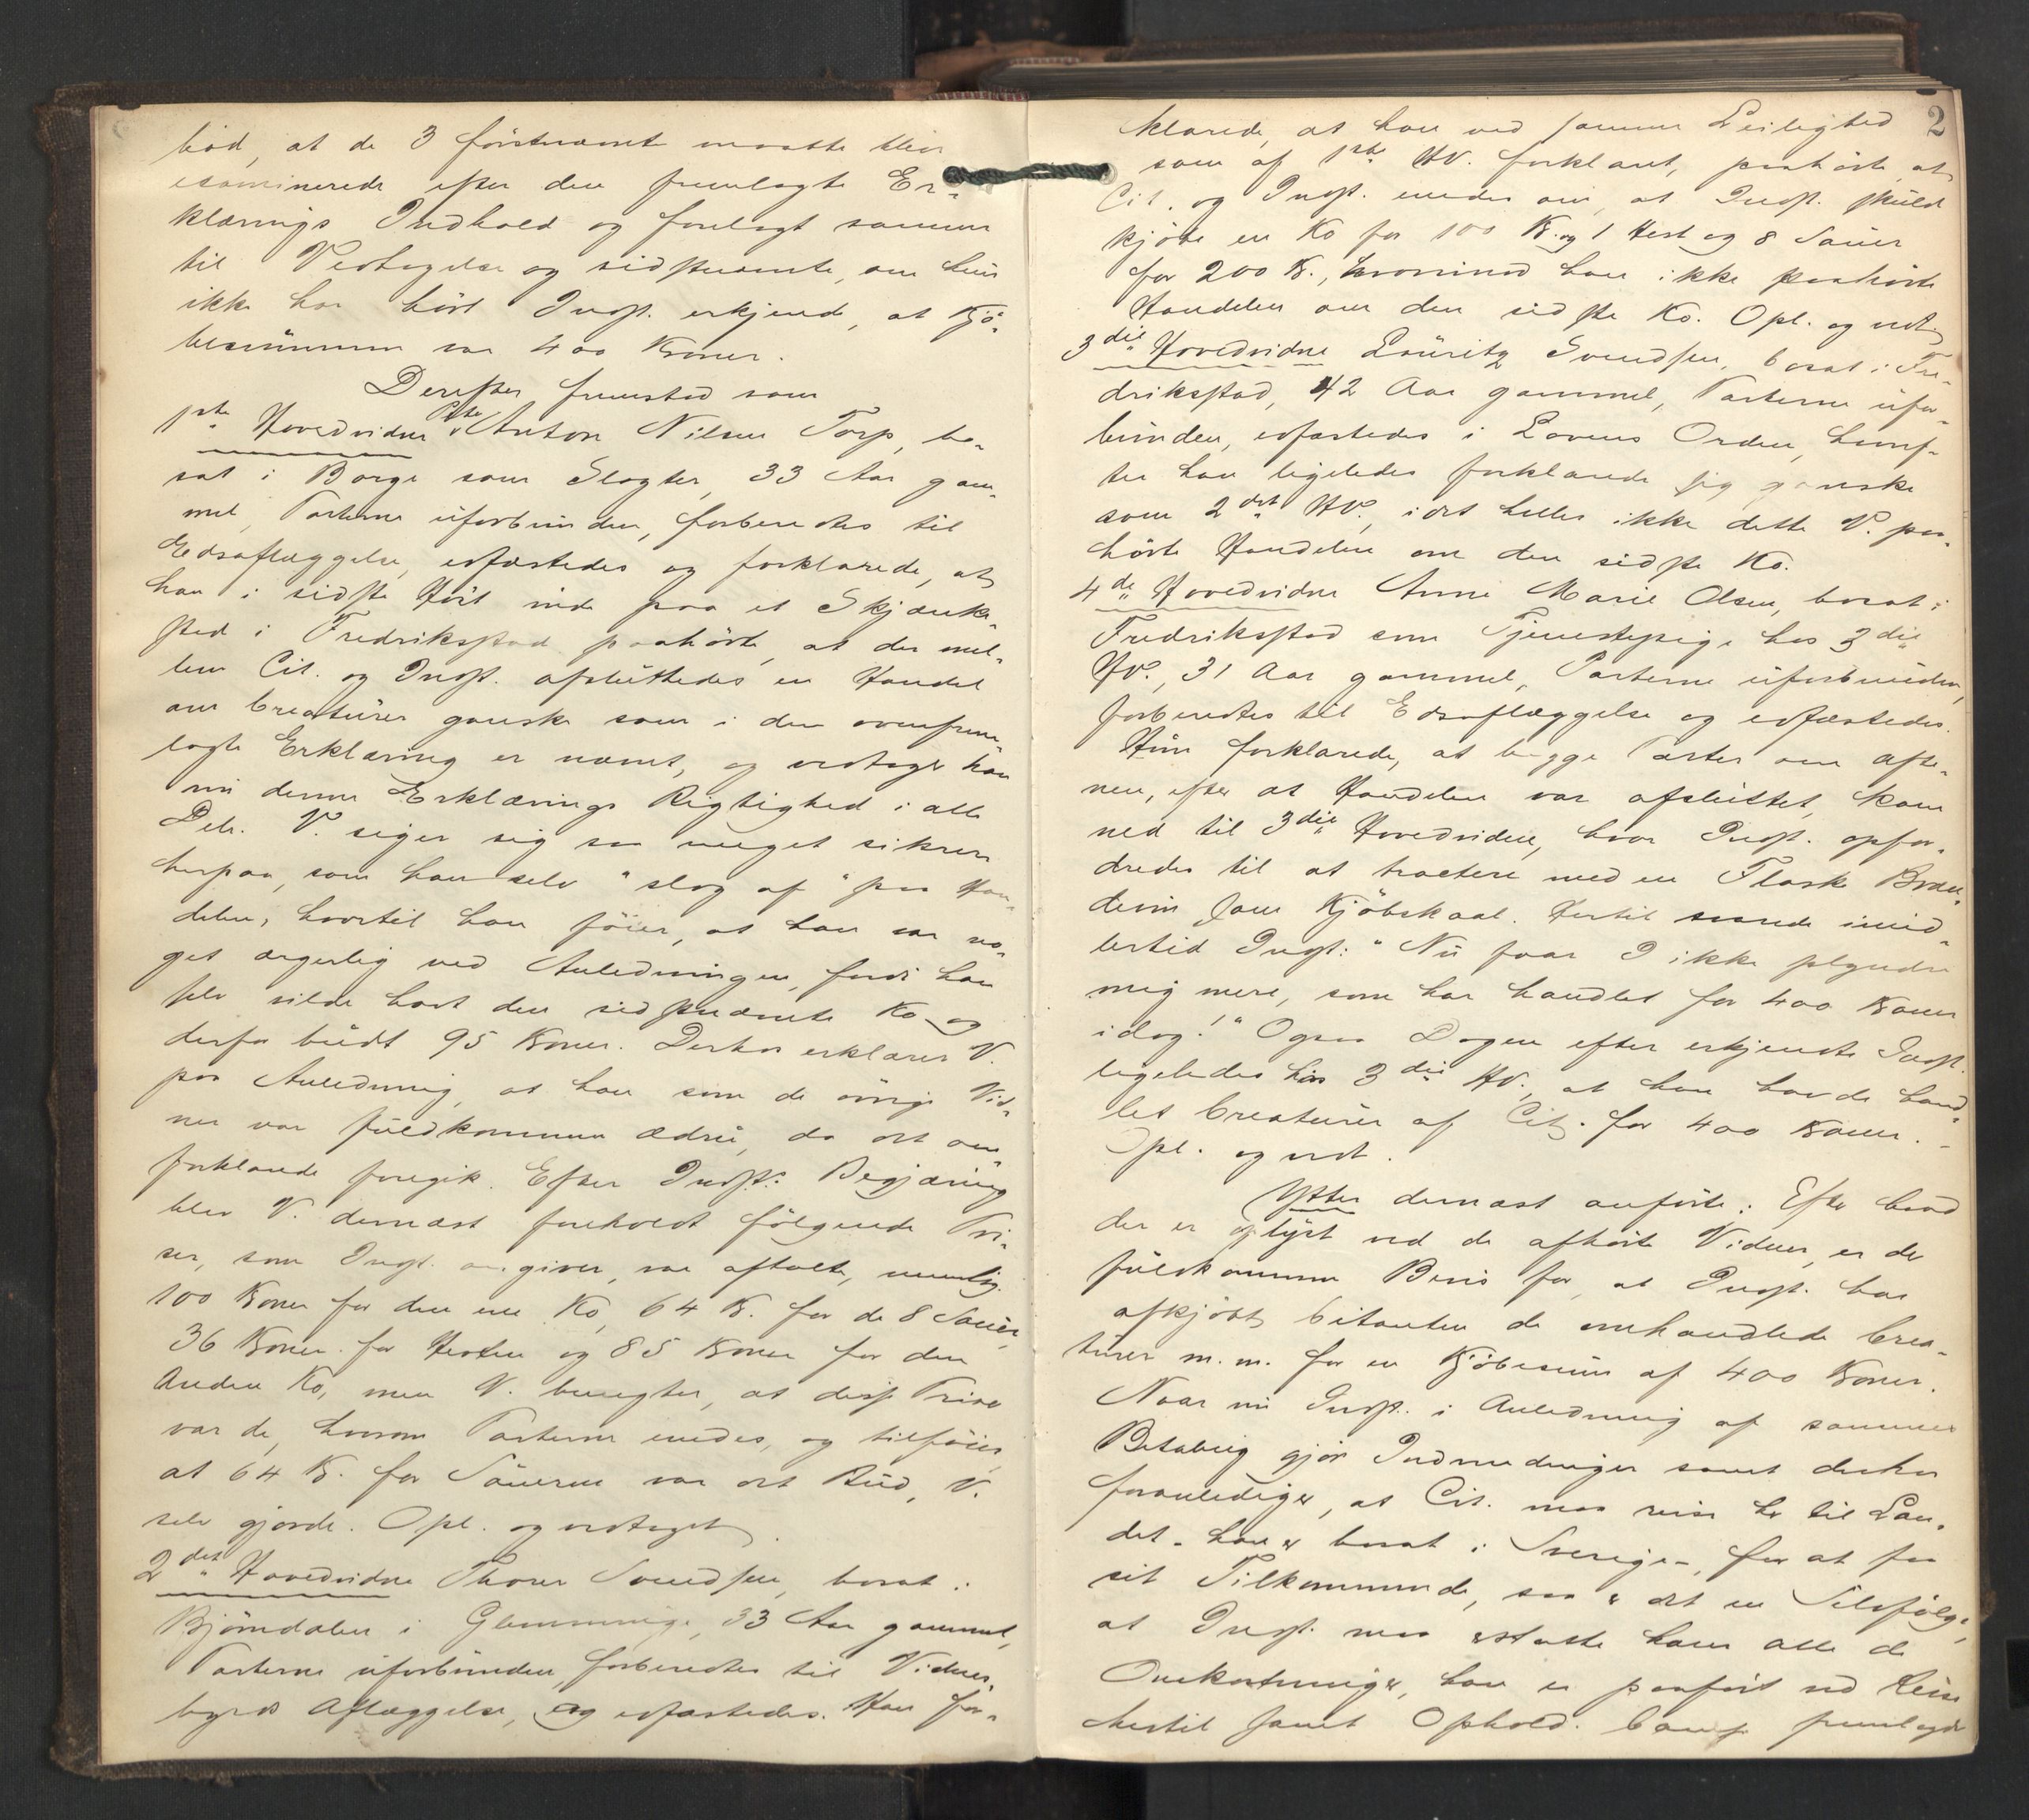 bød, at de 3 førstnævnte maatte blive
examinerede efter den fremlagte Er-
klærings Indhold og forelagt samme
til Vedtagelse og sidstnævnte, om hun
ikke har hørt Indst. erkjende, at Kjø-
besummen var 400 Kroner.
Derefter fremstod som
1ste Hovedvidne Anton Nilsen Torp, bo-
sat i Borge som Slagter, 33 Aar gam-
mel, Parterne uforbunden, forberedtes til
Edsaflæggelse, edfæstedes og forklarede, at
han i sidste Høst inde paa et Skjænke-
sted i Fredriksstad paahørte, at der mel-
lem Cit. og Indst. afsluttedes en Handel
om Creaturer ganske som i den ovenfrem-
lagte Erklæring er nævnt, og vedtager han
nu denne Erklærings Rigtighed i alle
Dele. V. siger sig saa meget sikrere
herpaa, som han selv "slog af" paa Han-
delen, hvortil han føier, at han var no-
get ærgerlig ved Anledningen, fordi han
selv vilde havt den sidstnævnte Ko og
derfor budt 95 Kroner. Derhos erklærer V.
paa Anledning, at han som de øvrige Vid-
ner var fuldkommen ædru, da det oven
forklarede foregik. Efter Indst.s Begjæring
blev V. dernæst foreholdt følgende Pri-
ser, som Indst. angiver, var aftalte, nemlig
100 Kroner for den ene Ko, 64 Kr. for de 8 Sauer,
36 Kroner for Hesten og 85 Kroner for den
Anden Ko, men V. benegter, at disse Priser
var de, hvorom Parterne enedes, og tilføier,
at 64 Kr. for Sauerne var det Bud, V.
selv gjorde. Opl. og vedtaget.
2det Hovedvidne Thorer Svendsen, bosat i
Bjørndalen i Glemminge, 33 Aar gammel,
Parterne uforbunden, forberedtes til Vidnes-
byrds Aflæggelse, og edfæstedes. Han for-
2
klarede, at han ved samme Leilighed
som af 1ste HV. forklaret, paahørte, at
Cit. og Indst. enedes om, at Indst. skulde
kjøbe en Ko for 100 Kr. og 1 Hest og 8 Sauer
for 200 Kr., hvorimod han ikke paahørte
Handelen om den sidste Ko. Opl. og vedt.
3die Hovedvidne Lauritz Svendsen, bosat i Fre-
driksstad, 42 Aar gammel, Parterne ufor-
bunden, edfæstedes i Lovens Orden, hvoref-
ter han ligeledes forklarede sig ganske
som 2det HV., idet heller ikke dette V. paa-
hørte Handelen om den sidste Ko.
4de Hovedvidne Anne Marie Olsen, bosat i
Fredriksstad som Tjenestepige hos 3die
HV., 31 Aar gammel, Parterne uforbunden,
forberedtes til Edsaflæggelse og edfæstedes.
Hun forklarede, at begge Parter om Afte-
nen, efter at Handelen var afsluttet, kom
ned til 3die Hovedvidne, hvor Indst. opfor-
dredes til at tractere med en Flaske Bran-
devin som Kjøbskaal. Hertil svarede imid-
lertid Indst: "Nu faar I ikke plyndre
mig mere, som har handlet for 400 Kroner
idag!" Ogsaa Dagen efter erkjendte Indst.
ligeledes hos 3die HV., at han havde hand-
let Creaturer af Cit. for 400 Kroner. -
Opl. og vedt.
Ytter dernæst anførte: Efter hvad
der er oplyst ved de afhørte Vidner, er der
fuldkomment Bevis for, at Indst. har
afkjøbt Citanten de omhandlede Crea-
turer m. m. for en Kjøbesum af 400 Kroner.
Naar nu Indst. i Anledning af sammes
Betaling gjør Indvendinger samt derhos
foranlediger, at Cit. maa reise her til Lan-
det - han er bosat i Sverige -, for at faa
sit Tilkommende, saa er det en Selvfølge,
at Indst. maa erstatte ham alle de
Omkostninger, han er paaført ved Reise
hertil samt Ophold. Comp. fremlagde